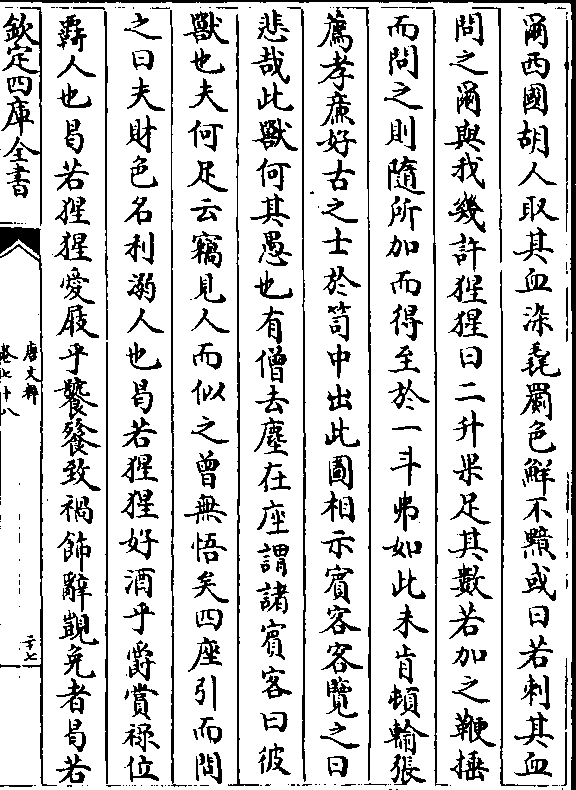 爾西國胡人取其血染毳罽色鮮不黯或曰若刺其血
問之爾與我幾許猩猩曰二升果足其數若加之鞭捶
而問之則隨所加而得至於一斗弗如此未肯頓輸張
薦孝廉好古之士於笥中出此圖相示賓客客覽之曰
悲哉此獸何其愚也有僧去塵在座謂諸賓客曰彼
獸也夫何足云竊見人而似之曾無悟矣四座引而問
之曰夫財色名利溺人也曷若猩猩好酒乎爵賞祿位
覊人也曷若猩猩愛屐乎饕餮致禍飾辭覬免者曷若
欽定四庫全書
唐文粹
卷七十八
二十七